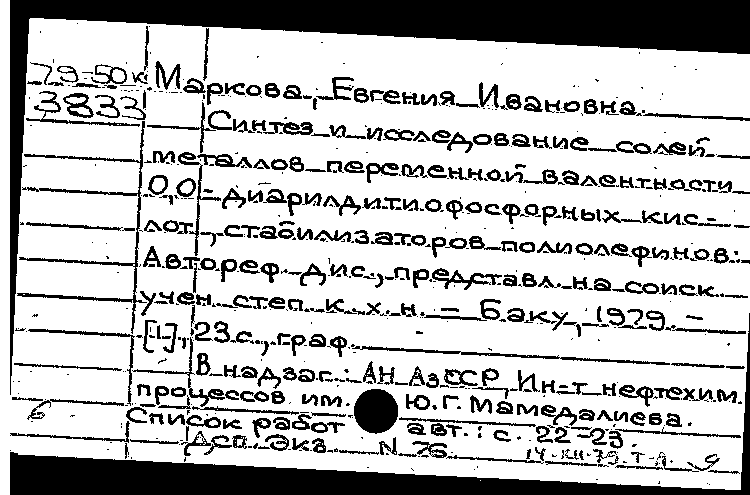 79-50к Маркова, Евгения Ивановна.
3833 Синтез и исследование солей
металлов переменной валентности
О,О-диарилдитиофосфорных кис-
лот, стабилизаторов полиолефинов:
Автореф. дис., представл. на соиск.
учен. степ. к. х. н. - Баку, 1979. -
[1], 23 с., граф.
В надзаг.: АН АзССР, Ин-т нефтехим.
процессов им. Ю.Г. Мамедалиева.
6 Список работ авт.: с. 22-23.
Дсп. Экз. N 76. 14.XII.79. Т-Л.